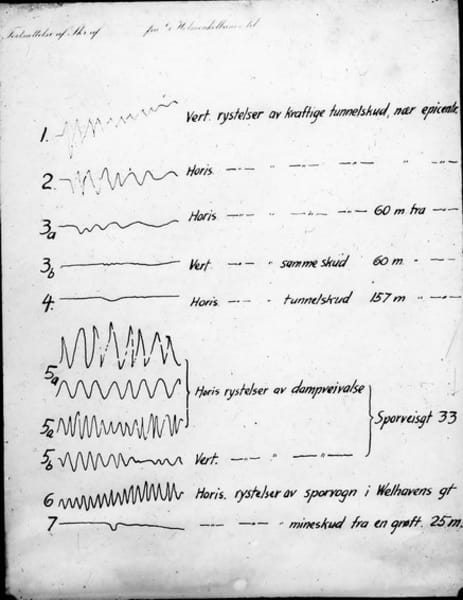 Fortsættelse af Skr. af fra Holmenkolbanen til
1. Vert. rystelser av kraftige tunnelskud, nær epicentr.
2. Horis. —"— " —"— —"— " —"—
3a Horis. —"— —"— —"— 60 m fra —"—
3b Vert. —"— " samme skud 60 m. " —"—
4. Horis. —"— " tunnelskud 157 m " —"—
5a Horis rystelser av dampveivalse
5a Sporveisgt 33
5b Vert. —"— " —"—
6 Horis. rystelser av sporvogn i Welhavens gt
7 —"— —"— " mineskud fra en grøft. 25 m.